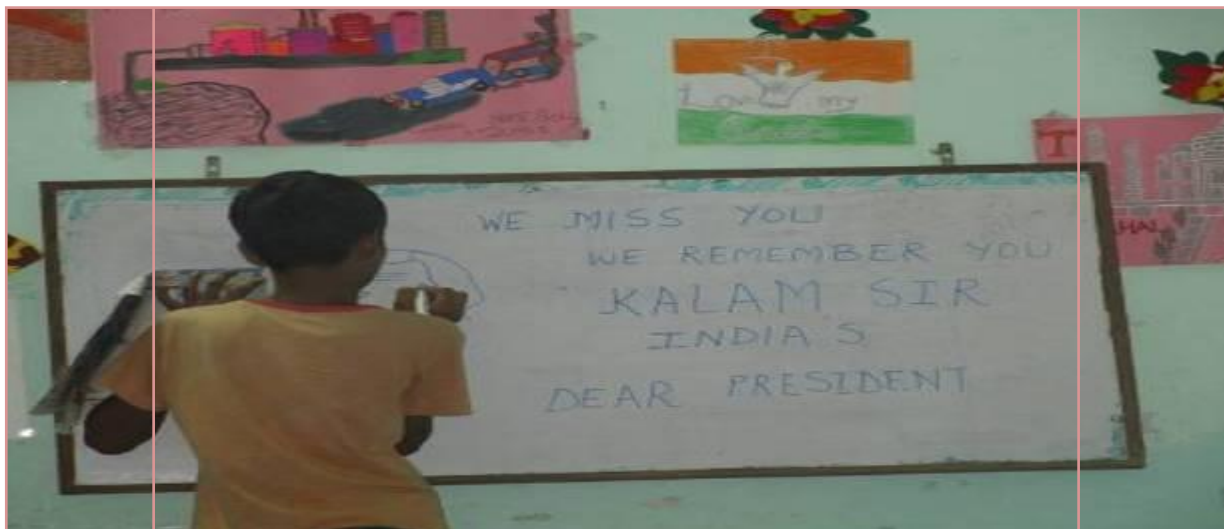 I Love my
T
HAL
WE MISS YOU
WE REMEMBER YOU
KALAM SIR
INDIA S
DEAR PRESIDENT